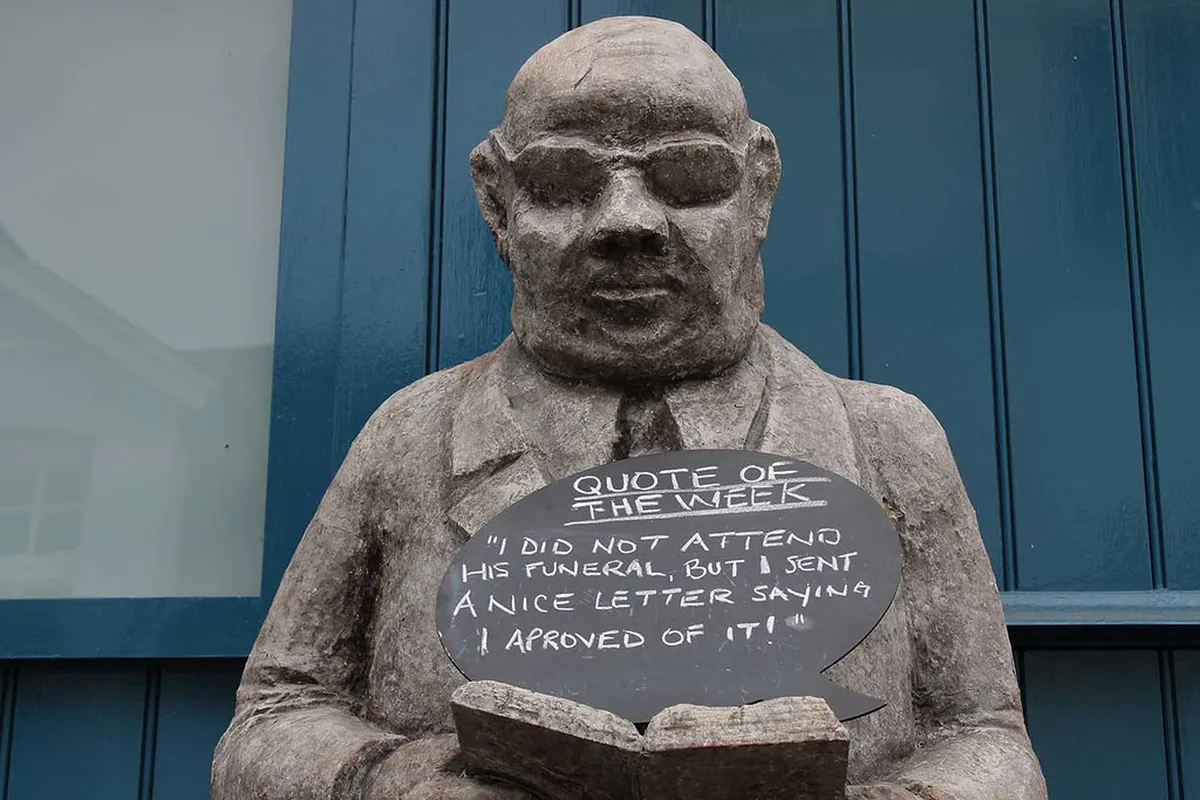 QUOTE OF
THE WEEK
"I DID NOT ATTEND
HIS FUNERAL, BUT I SENT
A NICE LETTER SAYING
I APROVED OF IT! "